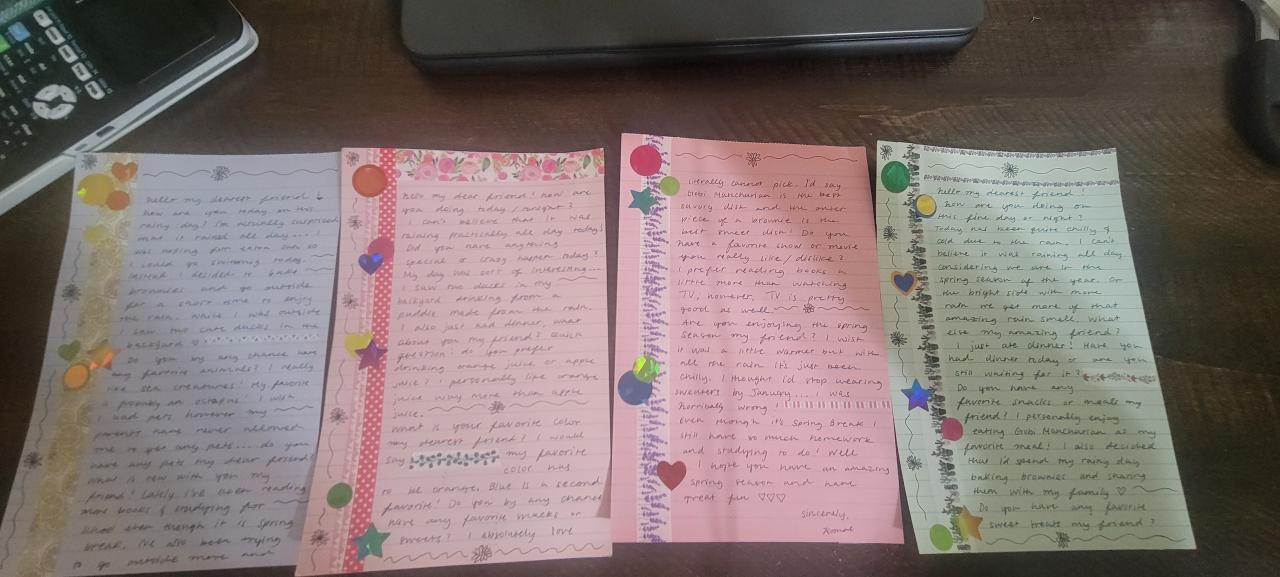 Hello my dearest friend!
how are you today on this
rainy day? I'm actually surprised
that it rained all day...!
was hoping
could go swimming today.
Instead I decided to bake
brownies and go outside
for a short time to enjoy
the rain. While I was outside
I saw two cute ducks in the
backyard ♡
Do you by any chance have
any favorite animals? I really
like sea creatures! My favorite
is probably an octopus! I wish
I had pets however my
parents have never allowed
me to get any pets... do you
have any pets my dear friend?
what is new with you my
friend? Lately, I've been reading
more books & studying for
school even though it is spring
break. I've also been trying
to go outside more and
Hello my dear friend! how are
you doing today/tonight?
I can't believe that it was
raining practically all day today!
Did you have anything
special or crazy happen today?
My day was sort of interesting...
I saw two ducks in my
backyard drinking from a
puddle made from the rain.
I also just had dinner, what
about you my friend? Quick
question: do you prefer
drinking orange juice or apple
juice? I personally like orange
juice way more than apple
juice.
What is your favorite color
my dearest friend? I would
say my favorite
color has
to be orange. Blue is a second
favorite! Do you by any chance
have any favorite snacks or
sweets? I absolutely love
literally cannot pick. I'd say
Gobi Manchurian is the best
savory dish and the outer
piece of a brownie is the
best sweet dish! Do you
have a favorite show or movie
you really like/dislike?
I prefer reading books a
little more than watching
TV, however, TV is pretty
good as well.
Are you enjoying the spring
season my friend? I wish
it was a little warmer but with
all the rain it's just been
chilly. I thought I'd stop wearing
sweaters by January... I was
horribly wrong!
even though it's Spring Break I
still have so much homework
and studying to do! Well
I hope you have an amazing
spring season and have
great fun ♡♡♡
Sincerely,
Komal
Hello my dearest friend.
how are you doing on
this fine day or night?
Today has been quite chilly &
cold due to the rain. I can't
believe it was raining all day
considering we are in the
spring season of the year. On
the bright side with more
rain we get more of that
amazing rain smell. What
else my amazing friend?
I just ate dinner! Have you
had dinner today or are you
still waiting for it?
Do you have any
favorite snacks or meals my
friend? I personally enjoy
eating Gobi Manchurian as my
favorite meal! I also decided
that I'd spend my rainy day
baking brownies and sharing
them with my family ♡
Do you have any favorite
sweet treats my friend?